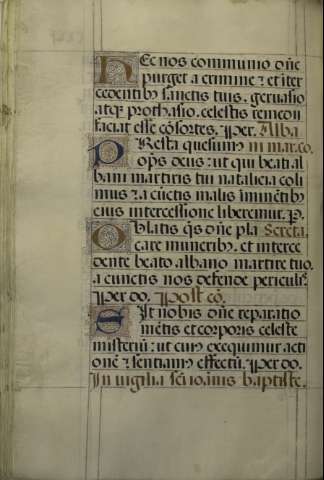 HEc nos communio dñe
purget a crimine ⁊ et iter
cedentibꝰ sanctis tuis, geruasio
atqꝫ prothasio, celestis remedii
faciat esse cōsortes, ꝑper. Alba
PResta quesumꝰ in mar.co.
opˢ deus: ut qui beati al
bani martiris tui natalicia coli
mus ⁊ a cūctis malis imīnētibꝰ
eius intercessione liberemur. P.
OBlatis qˢ dñe pla Secreta.
care muneribꝰ. et interce
dente beato albano martire tuo.
a cunctis nos defende periculis.
Per do. Post cō.
SIt nobis dñe reparatio
mētis et corporis celeste
misteriū: ut cuiꝰ exequimur acti
onē ⁊ sentiamꝰ effectū. Per do.
In uigilia scī ioānis baptiste.